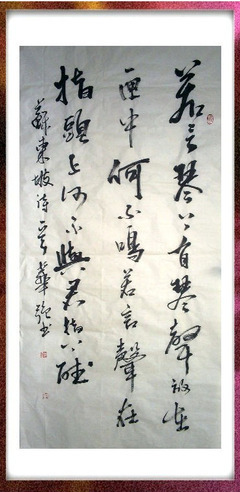 若言琴上有琴聲放在
匣中何不鳴若言聲在
指頭上何不與君指上聽
蘇東坡诗 華 书